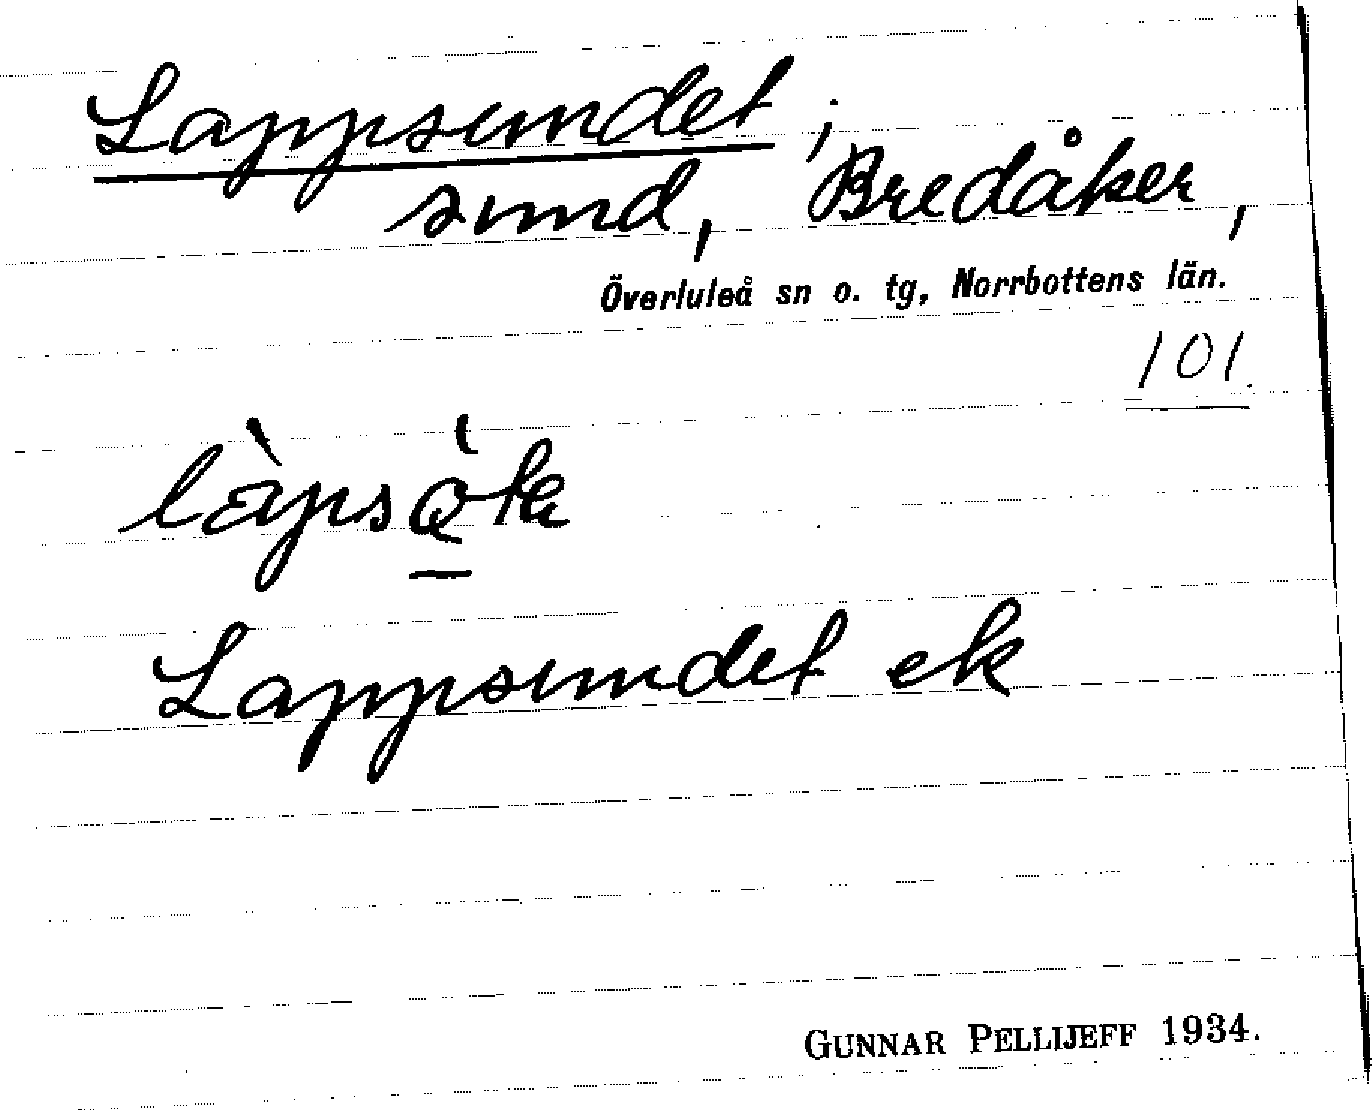 Lappsundet;
sund, Bredåker,
Överluleå sn o. tg, Norrbottens län.
101.
Lappsundet ek
GUNNAR PELLIJEFF 1934.